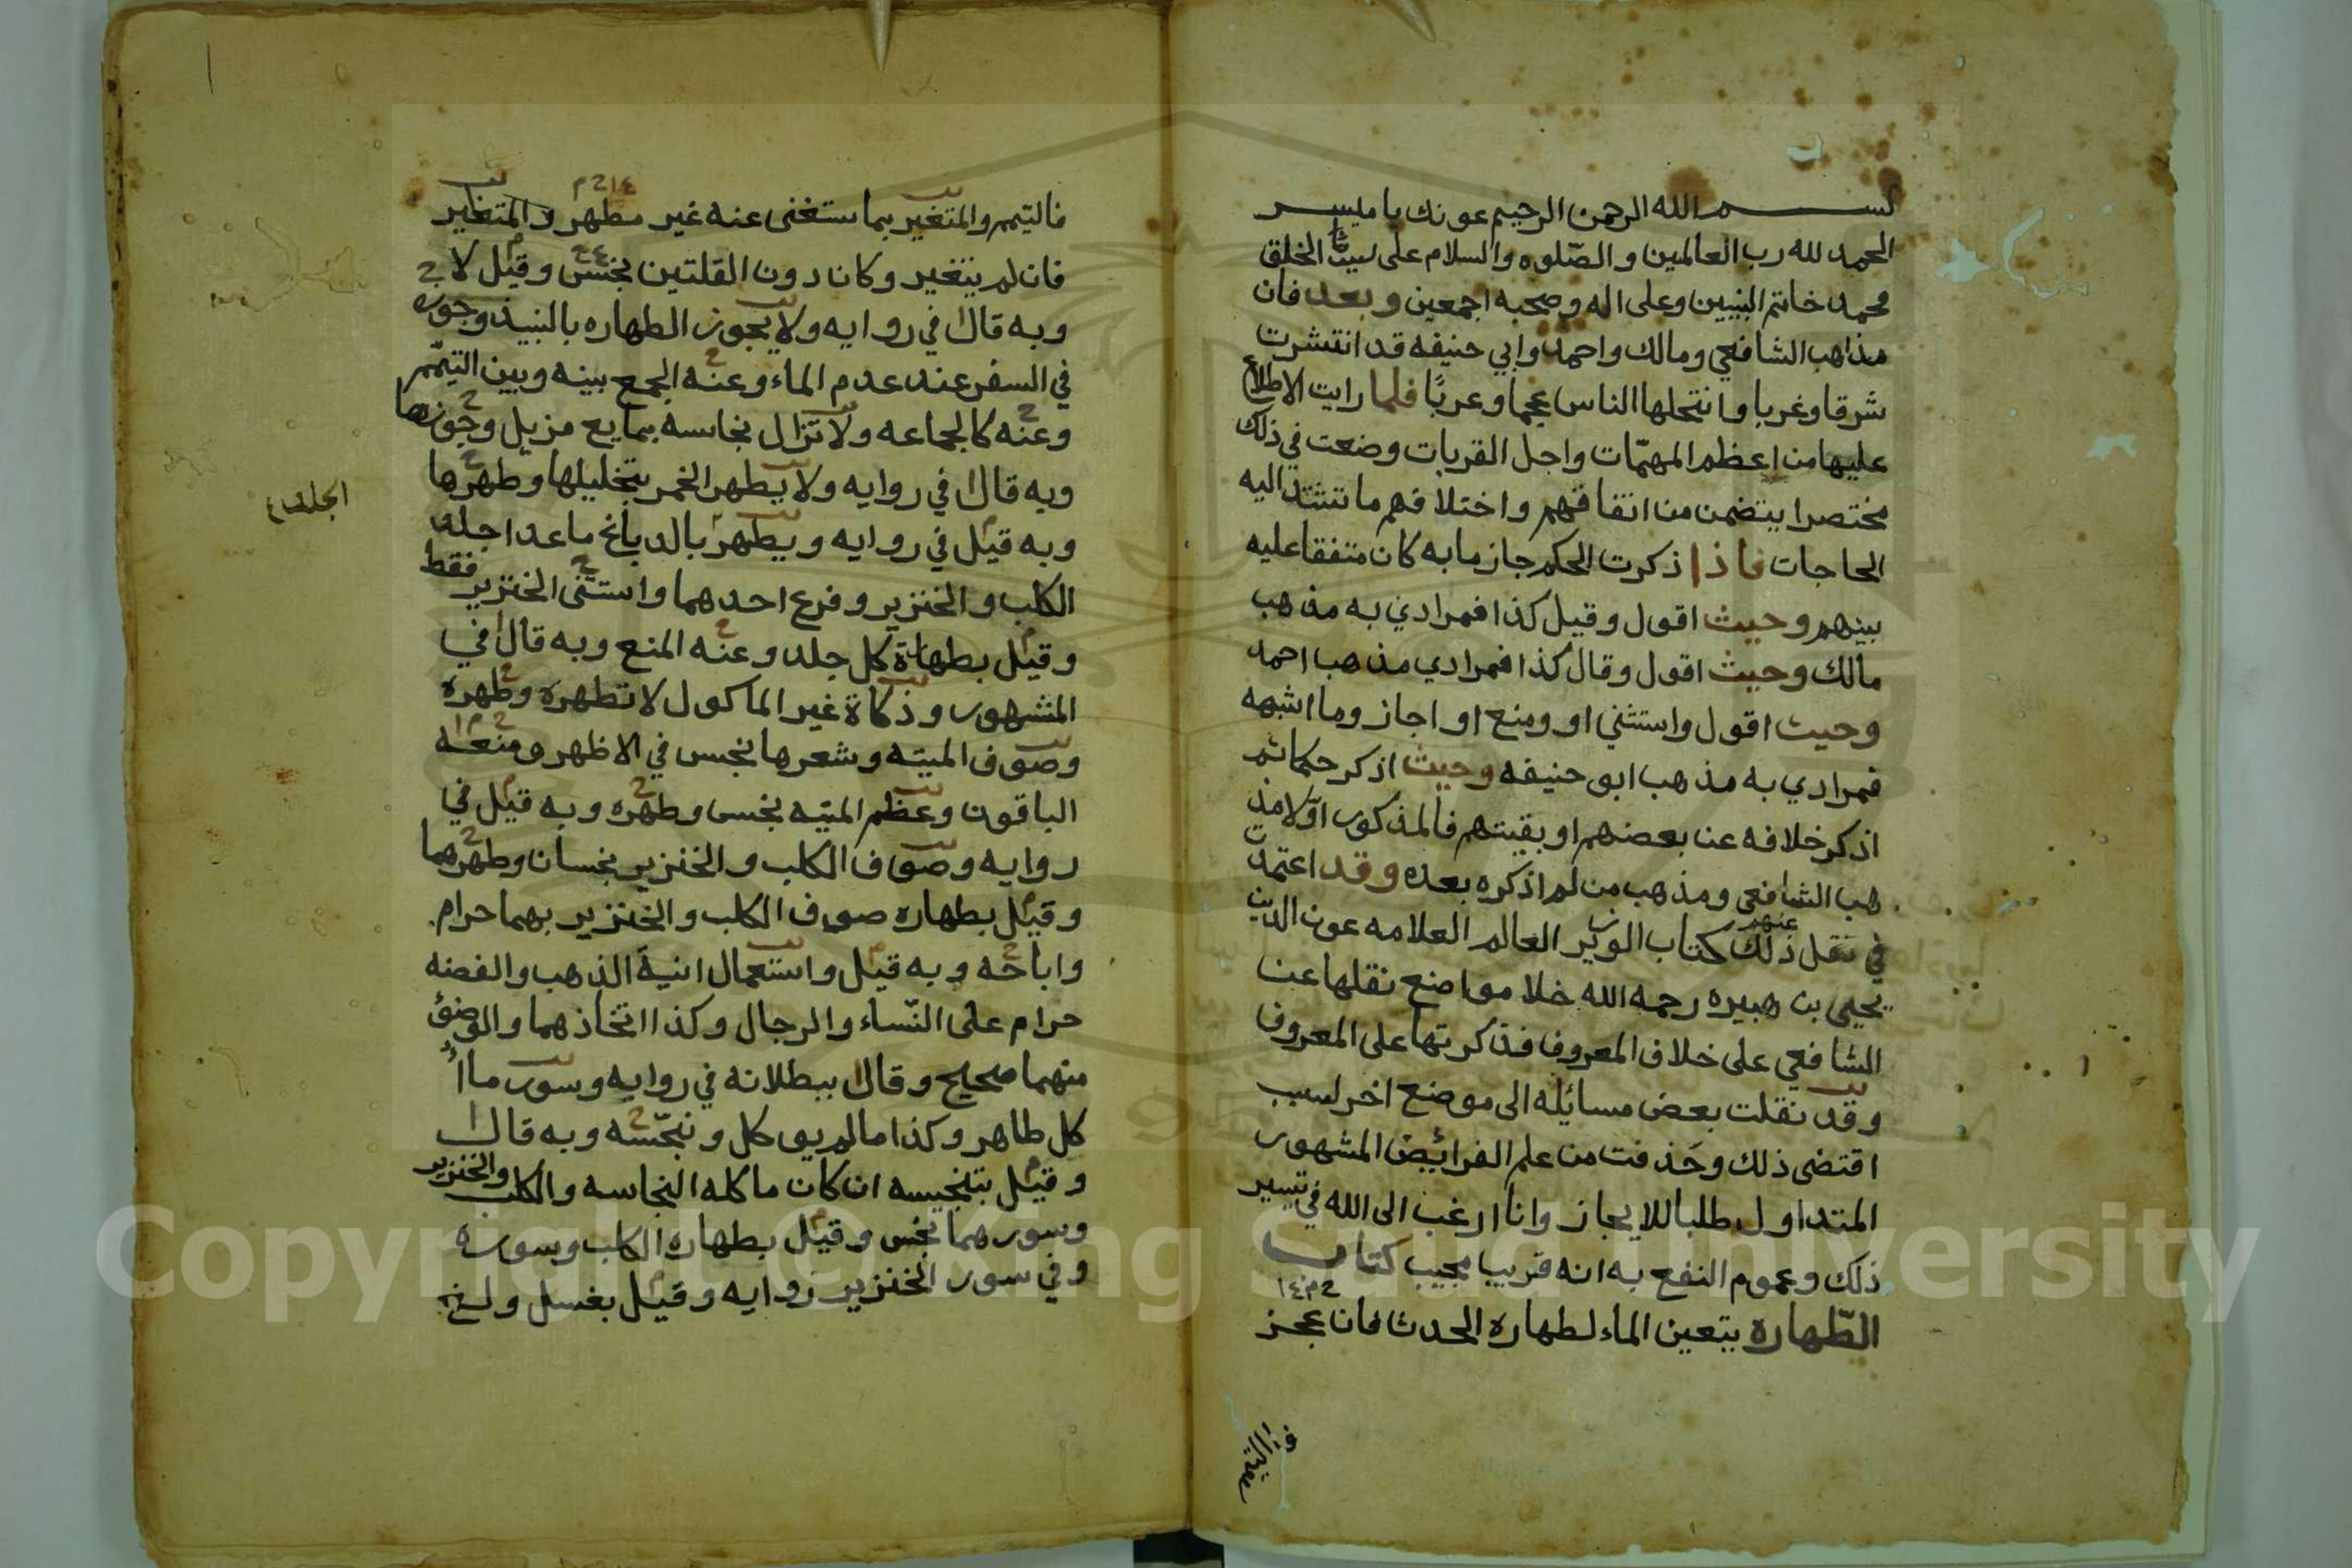 بسم الله الرحمن الرحيم عونك يا ميسر
الحمد لله رب العالمين والصلوه والسلام على سيد الخلق
محمد خاتم النبيين وعلى اله وصحبه اجمعين وبعد فان
مذاهب الشافعي ومالك واحمد وابي حنيفه قد انتشرت
شرقا وغربا وانتحلها الناس عجما وعربًا فلما رايت الاطلاع
عليها من اعظم المهمّات واجل القربات وضعت في ذلك
مختصرا يتضمن من اتفاقهم واختلافهم ما تشتد اليه
الحاجات فاذا ذكرت الحكم جازما به كان متفقا عليه
بينهم وحيث اقول وقيل كذا فمرادي به مذهب
مالك وحيث اقول وقال كذا فمرادي مذهب احمد
وحيث اقول واستثني او ومنع او اجاز وما اشبهه
فمرادي به مذهب ابو حنيفه وحيث اذكر حكما ثم
اذكر خلافه عن بعضهم او بقيتهم فالمذكور اوّلا مذ
هب الشافعي ومذهب من لم اذكره بعده وقد اعتمدت
في نقل ذلك عنهم كتاب الوزير العالم العلامه عون الدين
يحيى بن هبيره رحمه الله خلا مواضع نقلها عن
الشافعي على خلاف المعروف فذكرتها على المعروف
وقد نقلت بعض مسائله الى موضع اخر لسبب
اقتضى ذلك وحَذفت من علم الفرائض المشهور
المتداول طلبا للايجاز وانا ارغب الى الله في تيسير
ذلك وعموم النفع به انه قريب مجيب كتاب
الطّهارة يتعين الماء لطهارة الحدث فان عجز
فالتيمم والمتغير بما ستغنى عنه غير مطهر والمتغير
فان لم يتغير وكان دون القلتين نجس وقيل لا
وبه قال في روايه ولا يجوز الطهاره بالنبيذ وجوزه
في السفر عند عدم الماء وعنه الجمع بينه وبين التيمّم
وعنه كالجماعه ولا تزال نجاسه بمايع مزيل وجوزها
وبه قال في روايه ولا يطهر الخمر بتخليلها وطهرها
وبه قيل في روايه ويطهر بالدباغ ما عدا جلد
الجلد
الكلب والخنزير وفرع احدهما واستثنى الخنزير فقط
وقيل بطهارة كل جلد وعنه المنع وبه قال في
المشهور وذكاة غير الماكول لا تطهره وطهره
وصوف الميته وشعرها نجس في الاظهر ومنعه
الباقون وعظم الميته نجس وطهره وبه قيل في
روايه وصوف الكلب والخنزير نجسان وطهرهما
وقيل بطهاره صوف الكلب والخنزير بهما حرام
واباحه وبه قيل واستعمال انية الذهب والفضه
حرام على النّساء والرجال وكذا اتخاذهما والوضوء
منهما صحيح وقال ببطلانه في روايه وسور ما اُ
كل طاهر وكذا ما لم يوكل ونجّسه وبه قال
وقيل بتنجيسه ان كان ماكله النجاسه والكلب والخنزير
وسورهما نجس وقيل بطهاره الكلب وسوره
وفي سور الخنزير روايه وقيل بغسل ولغ
Copyright © King Saud University